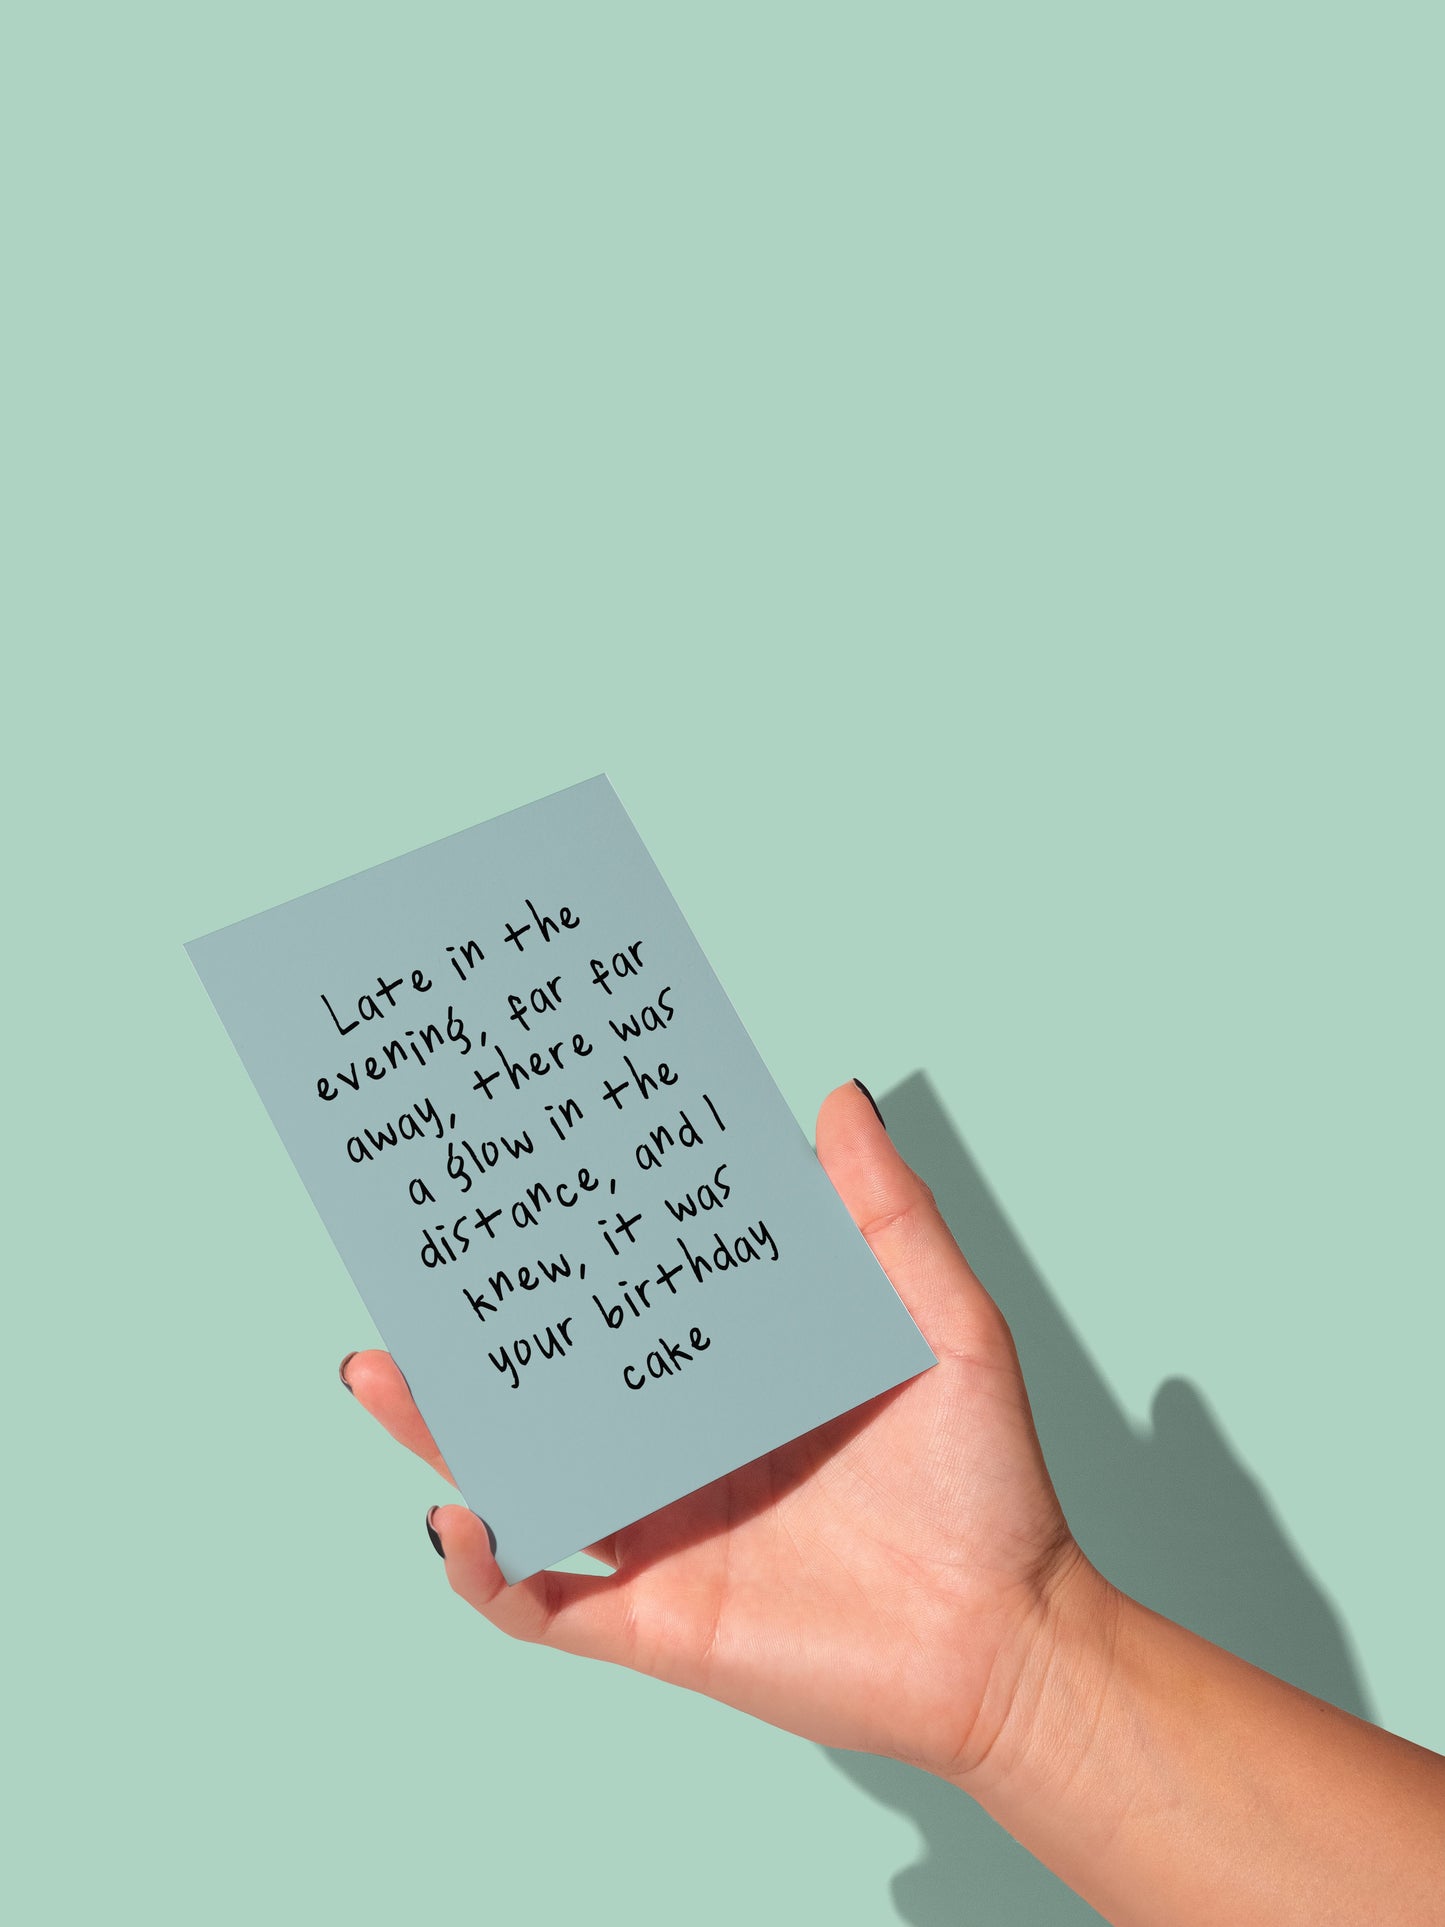 Late in the
evening, far far
away, there was
a glow in the
distance, and I
knew, it was
your birthday
cake